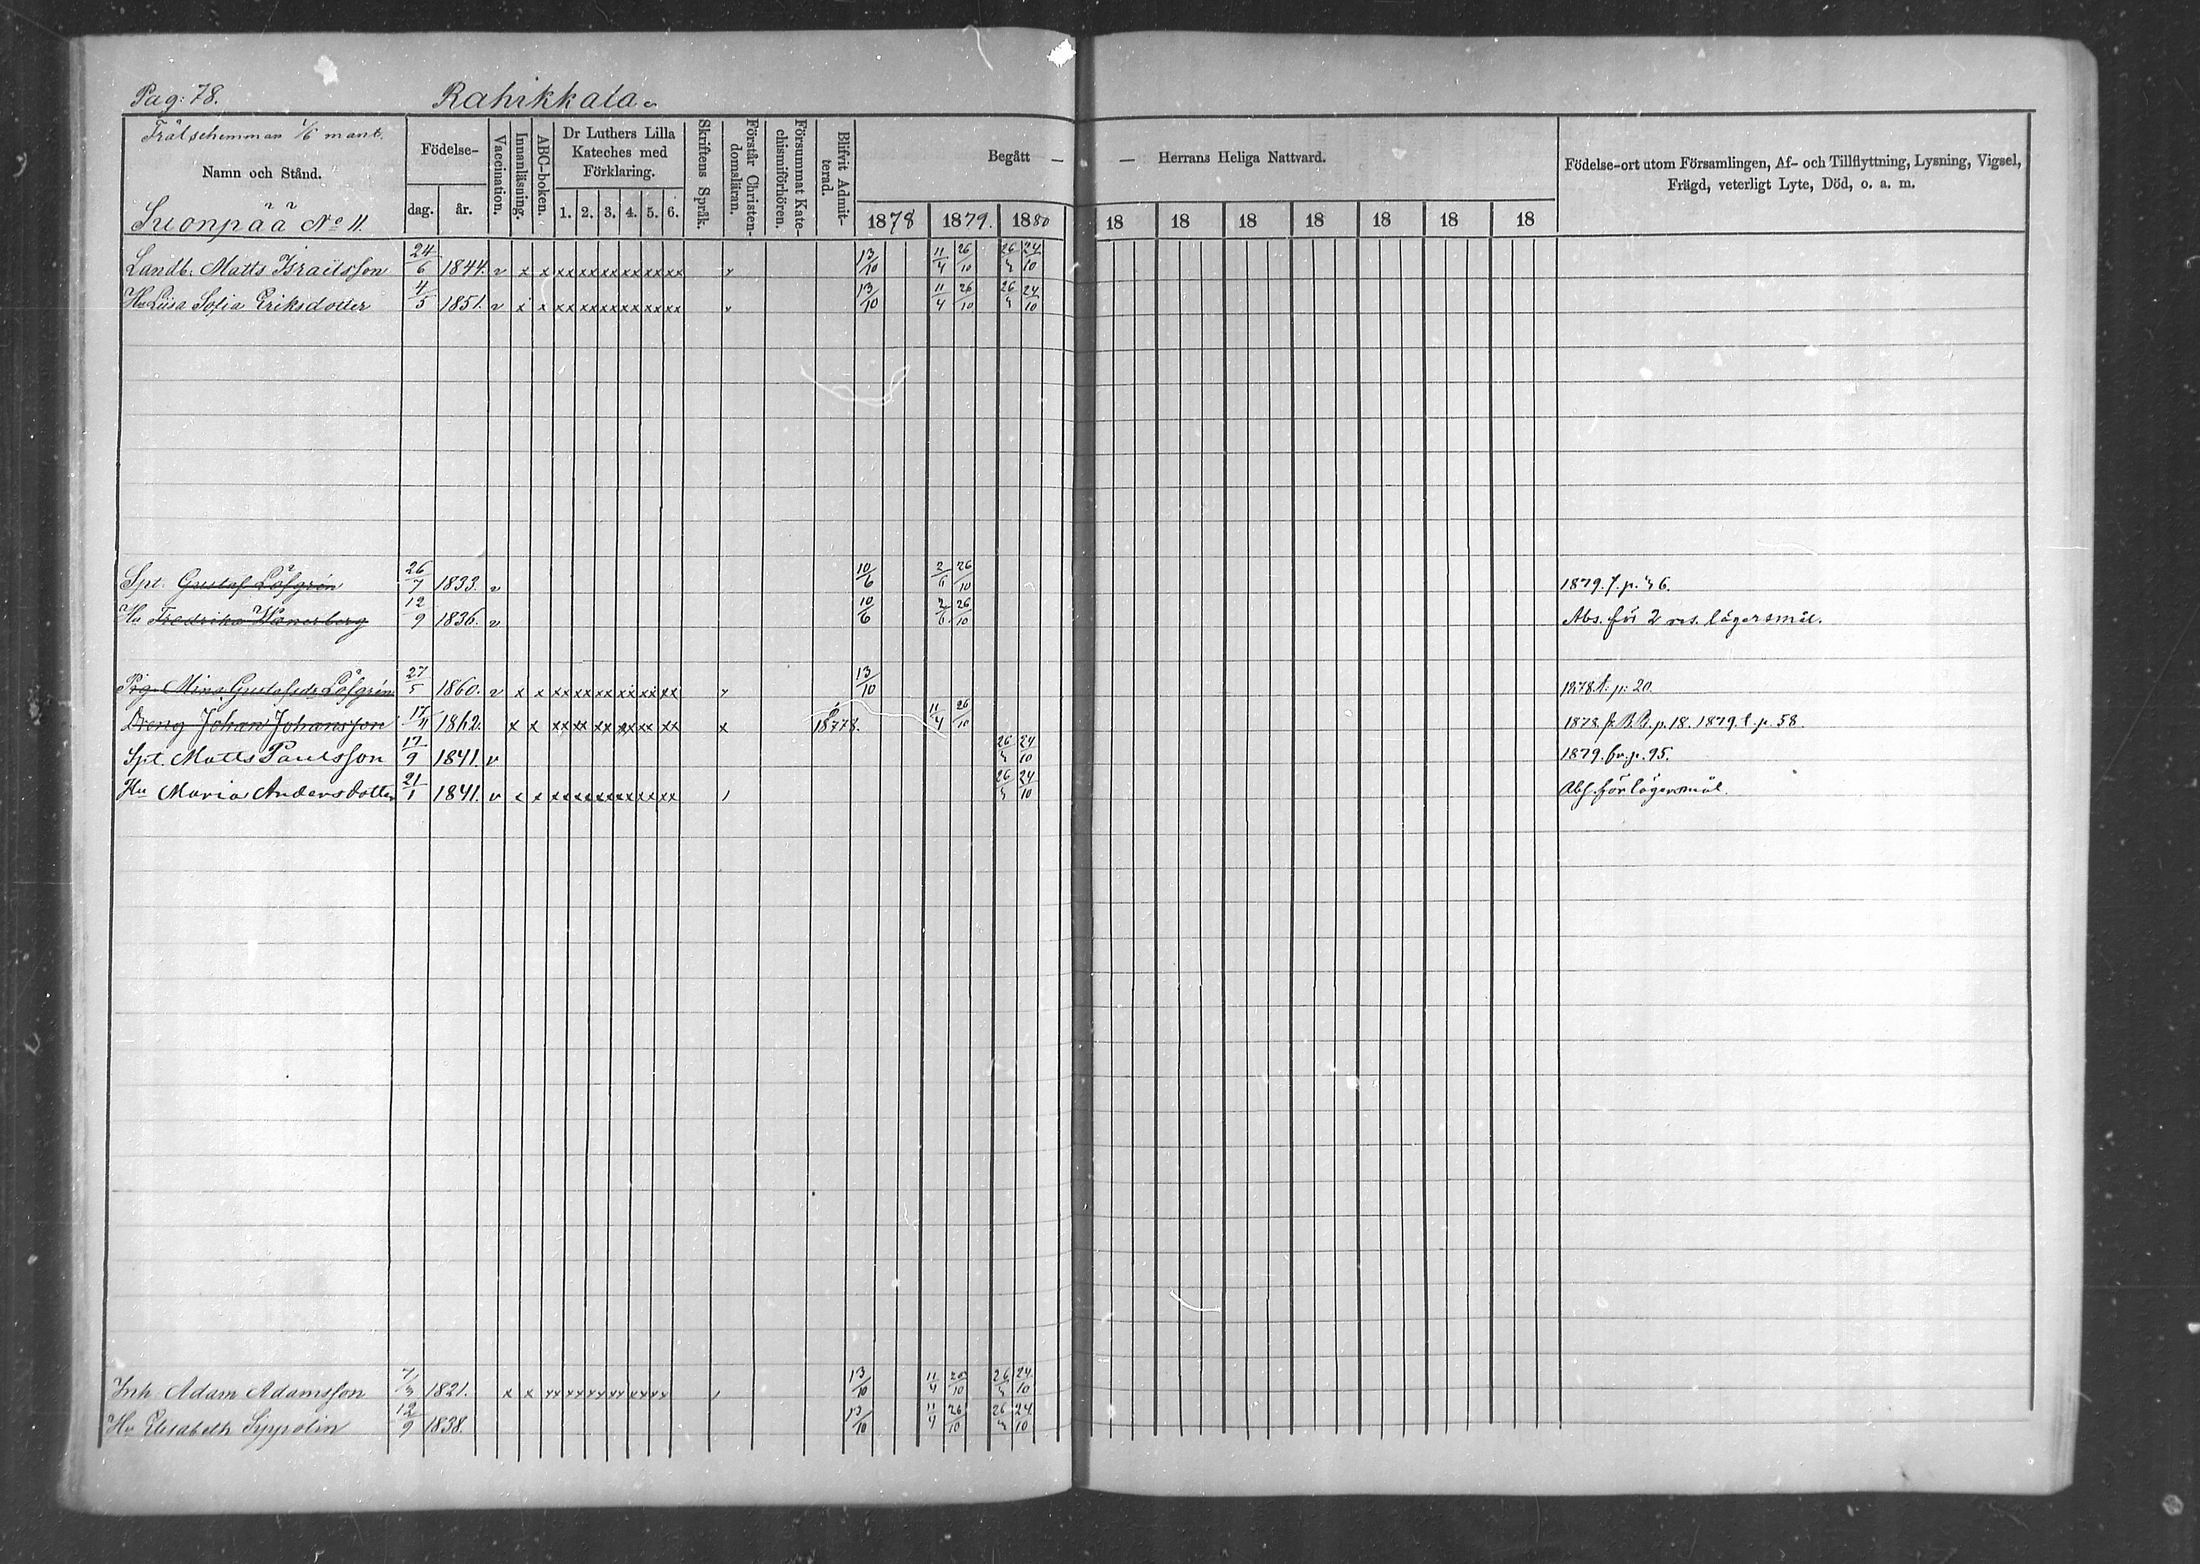 Pag: 78. Rahikkala
Frälsehemman 1/6 mant.
Namn och Stånd.
Suonpää No 11.
Födelse-
dag. år.
Vaccination.
Innanläsning.
ABC-boken.
Dr Luthers Lilla
Kateches med
Förklaring.
1. 2. 3. 4. 5. 6.
Skriftens Språk.
Förstår Christen-
domsläran.
Försummat Kate-
chismiförhören.
Blifvit Admit-
terad.
Begått — — Herrans Heliga Nattvard.
1878 1879. 1880 18 18 18 18 18 18 18
Födelse-ort utom Församlingen, Af- och Tillflyttning, Lysning, Vigsel,
Frägd, veterligt Lyte, Död, o. a. m.
Landb. Matts Israelsson 24/6 1844. v x x xx xx xx xx xx xx 13/10 11/4 26/10 26/4 24/10
Hu Lisa Sofia Eriksdotter 4/5 1851. v x x xx xx xx xx xx xx 13/10 11/4 26/10 26/4 24/10
Spt. Gustaf Löfgrén 26/7 1833. v 10/6 2/6 26/10 1879. f. p. 46.
Hu Fredrika 12/9 1836. v 10/6 2/6 26/10 Abs. för 2 res. lägersmål.
Pig. Mina Gustafsdr Löfgrén 27/5 1860. v x x xx xx xx xx xx xx 13/10 1878 p: 20.
Dreng Johan Johansson 17/11 1862. x x xx xx xx xx xx xx x 1878. 11/4 26/10 1878. fr. B.B. p. 18. 1879. t. p. 58.
Spt. Matts Paulsson 17/9 1841. v 26/4 24/10 1879. fr. p. 95.
Hu Maria Andersdotter 21/1 1841. v x x xx xx xx xx xx xx 26/4 24/10 Abs. för lägersmål.
Inh. Adam Adamsson 7/3 1821. x x xx xx xx xx xx xx 13/10 11/4 26/10 26/4 24/10
Hu Elisabeth Sippolin 12/9 1838. 13/10 11/4 26/10 26/4 24/10